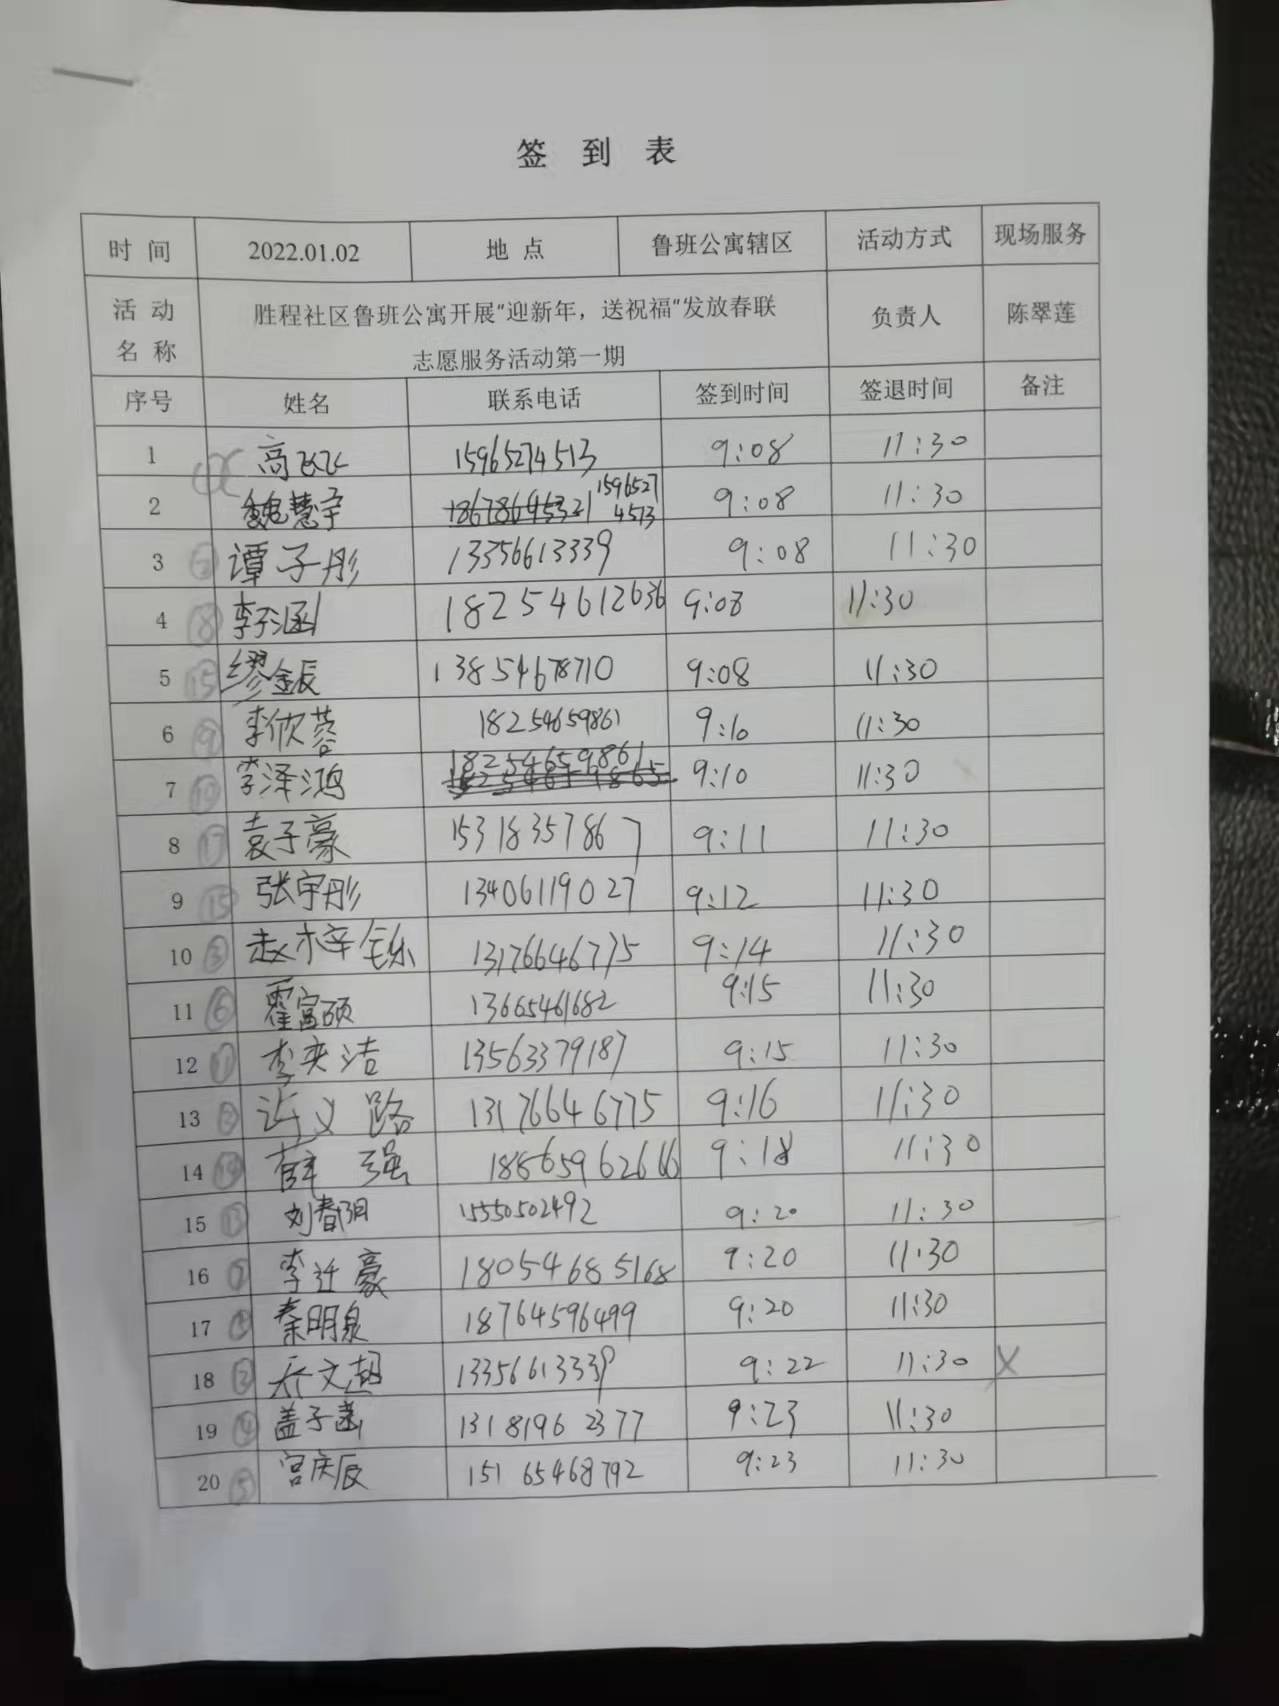 签 到 表
时 间 2022.01.02 地 点 鲁班公寓辖区 活动方式 现场服务
活 动 名 称 胜程社区鲁班公寓开展“迎新年，送祝福”发放春联 负责人 陈翠莲
志愿服务活动第一期
序号 姓名 联系电话 签到时间 签退时间 备注
1 高飞飞 15965274513 9:08 11:30
2 魏慧宇 18678645321 15965274513 9:08 11:30
3 谭子彤 13356613339 9:08 11:30
4 ⑧ 李涵 18254612636 9:08 11:30
5 ⑮ 缪金辰 13854678710 9:08 11:30
6 ⑨ 李欣蓉 18254659861 9:10 11:30
7 ⑩ 李泽鸿 18254659861 9:10 11:30
8 ⑰ 袁子豪 15318357867 9:11 11:30
9 ⑮ 张宇彤 13406119027 9:12 11:30
10 赵梓铄 13176646775 9:14 11:30
11 ⑥ 霍富硕 13665461682 9:15 11:30
12 ⑪ 李奕洁 13563379187 9:15 11:30
13 许义路 13176646775 9:16 11:30
14 薛强 18565962666 9:18 11:30
15 ⑬ 刘春阳 15550502492 9:20 11:30
16 李迁豪 18054685168 9:20 11:30
17 秦明泉 18764596499 9:20 11:30
18 乔文超 13356613339 9:22 11:30 X
19 ④ 盖子菡 13181962377 9:23 11:30
20 ⑤ 宫庆辰 15165468792 9:23 11:30